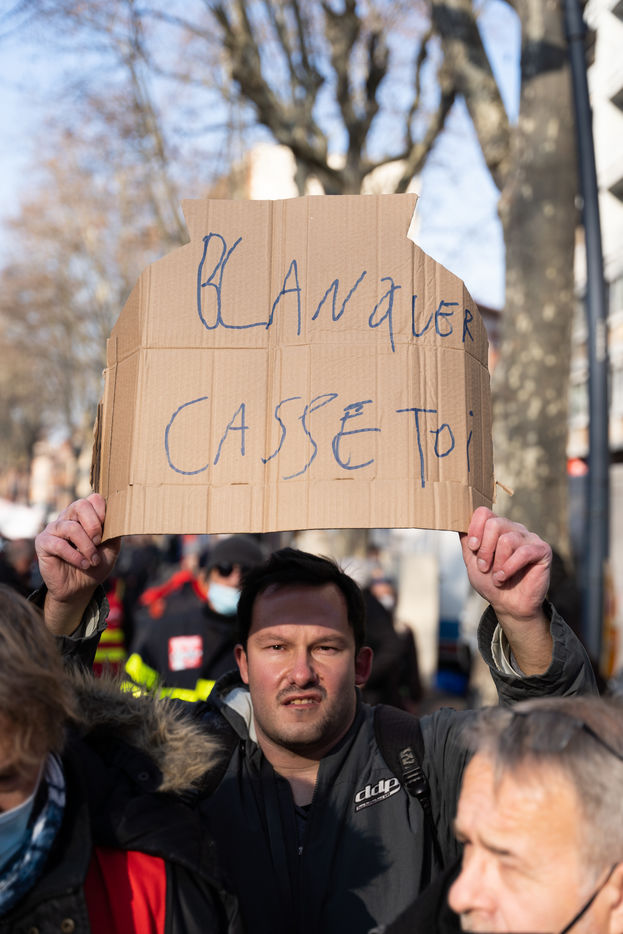 BLANQUER
CASSE TOi
ddp